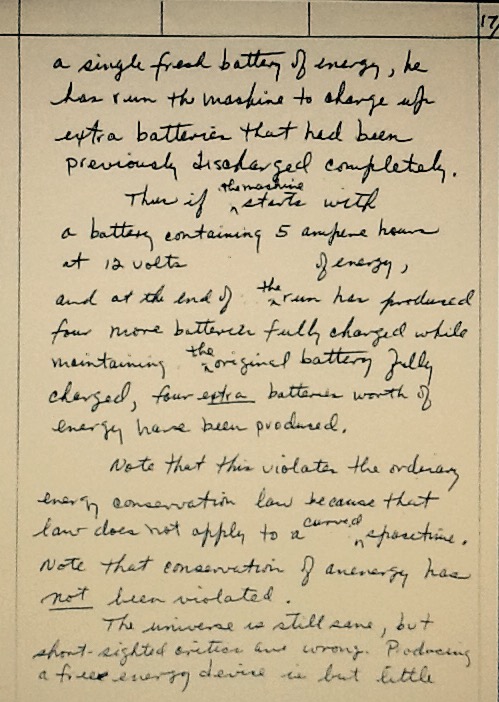 17/
a single fresh battery of energy, he
has run the machine to charge up
extra batteries that had been
previously discharged completely.
Thus if the machine starts with
a battery containing 5 ampere hours
at 12 volts of energy,
and at the end of the run has produced
four more batteries fully charged while
maintaining the original battery fully
charged, four extra batteries worth of
energy have been produced.
Note that this violates the ordinary
energy conservation law because that
law does not apply to a curved spacetime.
Note that conservation of anenergy has
not been violated.
The universe is still sane, but
short-sighted critics are wrong. Producing
a free energy device is but little